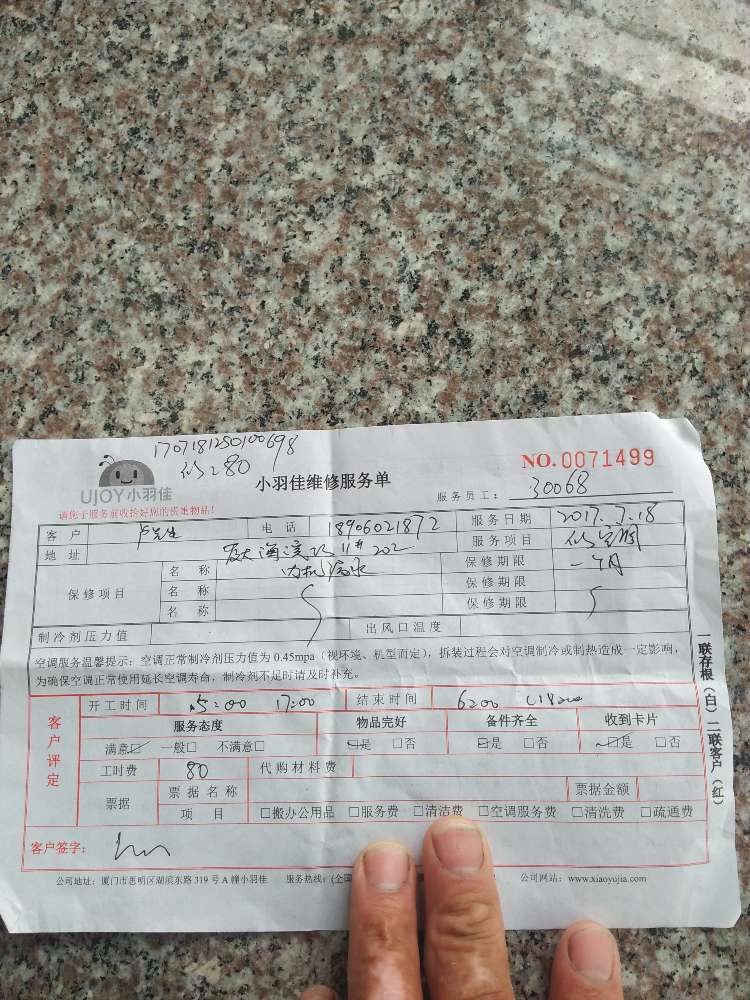 170718125010069 8
NO.0071499
UJOY小羽佳
小羽佳维修服务单
服务员工： 30068
请您于服务前收拾好您的贵重物品！
客户 卢先生 电话 18906021872 服务日期 2017.7.18
地址 11# 202 服务项目
保修项目 名称 内机漏水 保修期限 一个月
名称 保修期限
名称 保修期限
制冷剂压力值 出风口温度
空调服务温馨提示：空调正常制冷剂压力值为 0.45mpa（视环境、机型而定），拆装过程会对空调制冷或制热造成一定影响，
为确保空调正常使用延长空调寿命，制冷剂不足时请及时补充。
客户评定
开工时间 17:00 结束时间
服务态度 物品完好 备件齐全 收到卡片
满意☑ 一般□ 不满意□ ☑是 □否 ☑是 □否 ☑是 □否
工时费 80 代购材料费
票据 票据名称 票据金额
项目 □搬办公用品 □服务费 □清洁费 □空调服务费 □清洗费 □疏通费
客户签字：
公司地址：厦门市思明区湖滨东路 319 号 A 幢小羽佳 服务热线：(全国 公司网站：www.xiaoyujia.com
一联存根（白）二联客户（红）